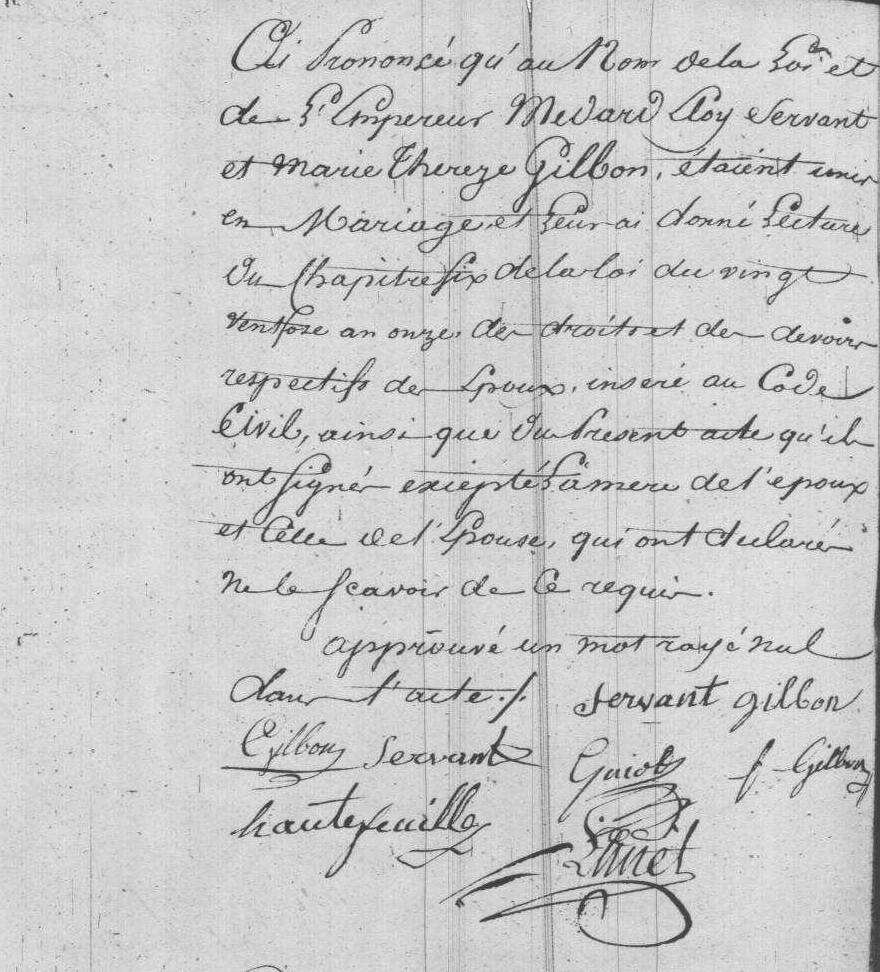 Ai Prononsé qu'au Nom de la Loi et
de L'Empereur Medard Eloy Servant
et Marie Thereze Gilbon, étaient unis
en Mariage, et Leur ai donné Lecture
du Chapitre Six de la loi du vingt
Ventsose an onze, des droits et des devoirs
respectifs des Epoux, inseré au Code
Civil, ainsi que du Present acte qu'ils
ont Signés exiepté La mere de l'epoux
et Celle de l'Epouse, qui ont declarés
Ne le Scavoir de Ce requis.
approuvé un mot rayé nul
dans l'acte ./.
servant gilbon
Gilbon Servant
f Gilbon
hautefeuille